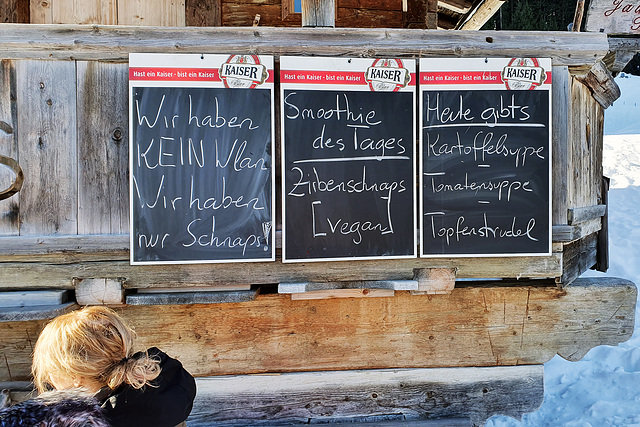 Hast ein Kaiser - bist ein Kaiser
KAISER
Wir haben
KEIN Wlan
Wir haben
nur Schnaps!
Hast ein Kaiser - bist ein Kaiser
KAISER
Smoothie
des Tages
Zirbenschnaps
[vegan]
Hast ein Kaiser - bist ein Kaiser
KAISER
Heute gibts
Kartoffelsuppe
Tomatensuppe
Topfenstrudel